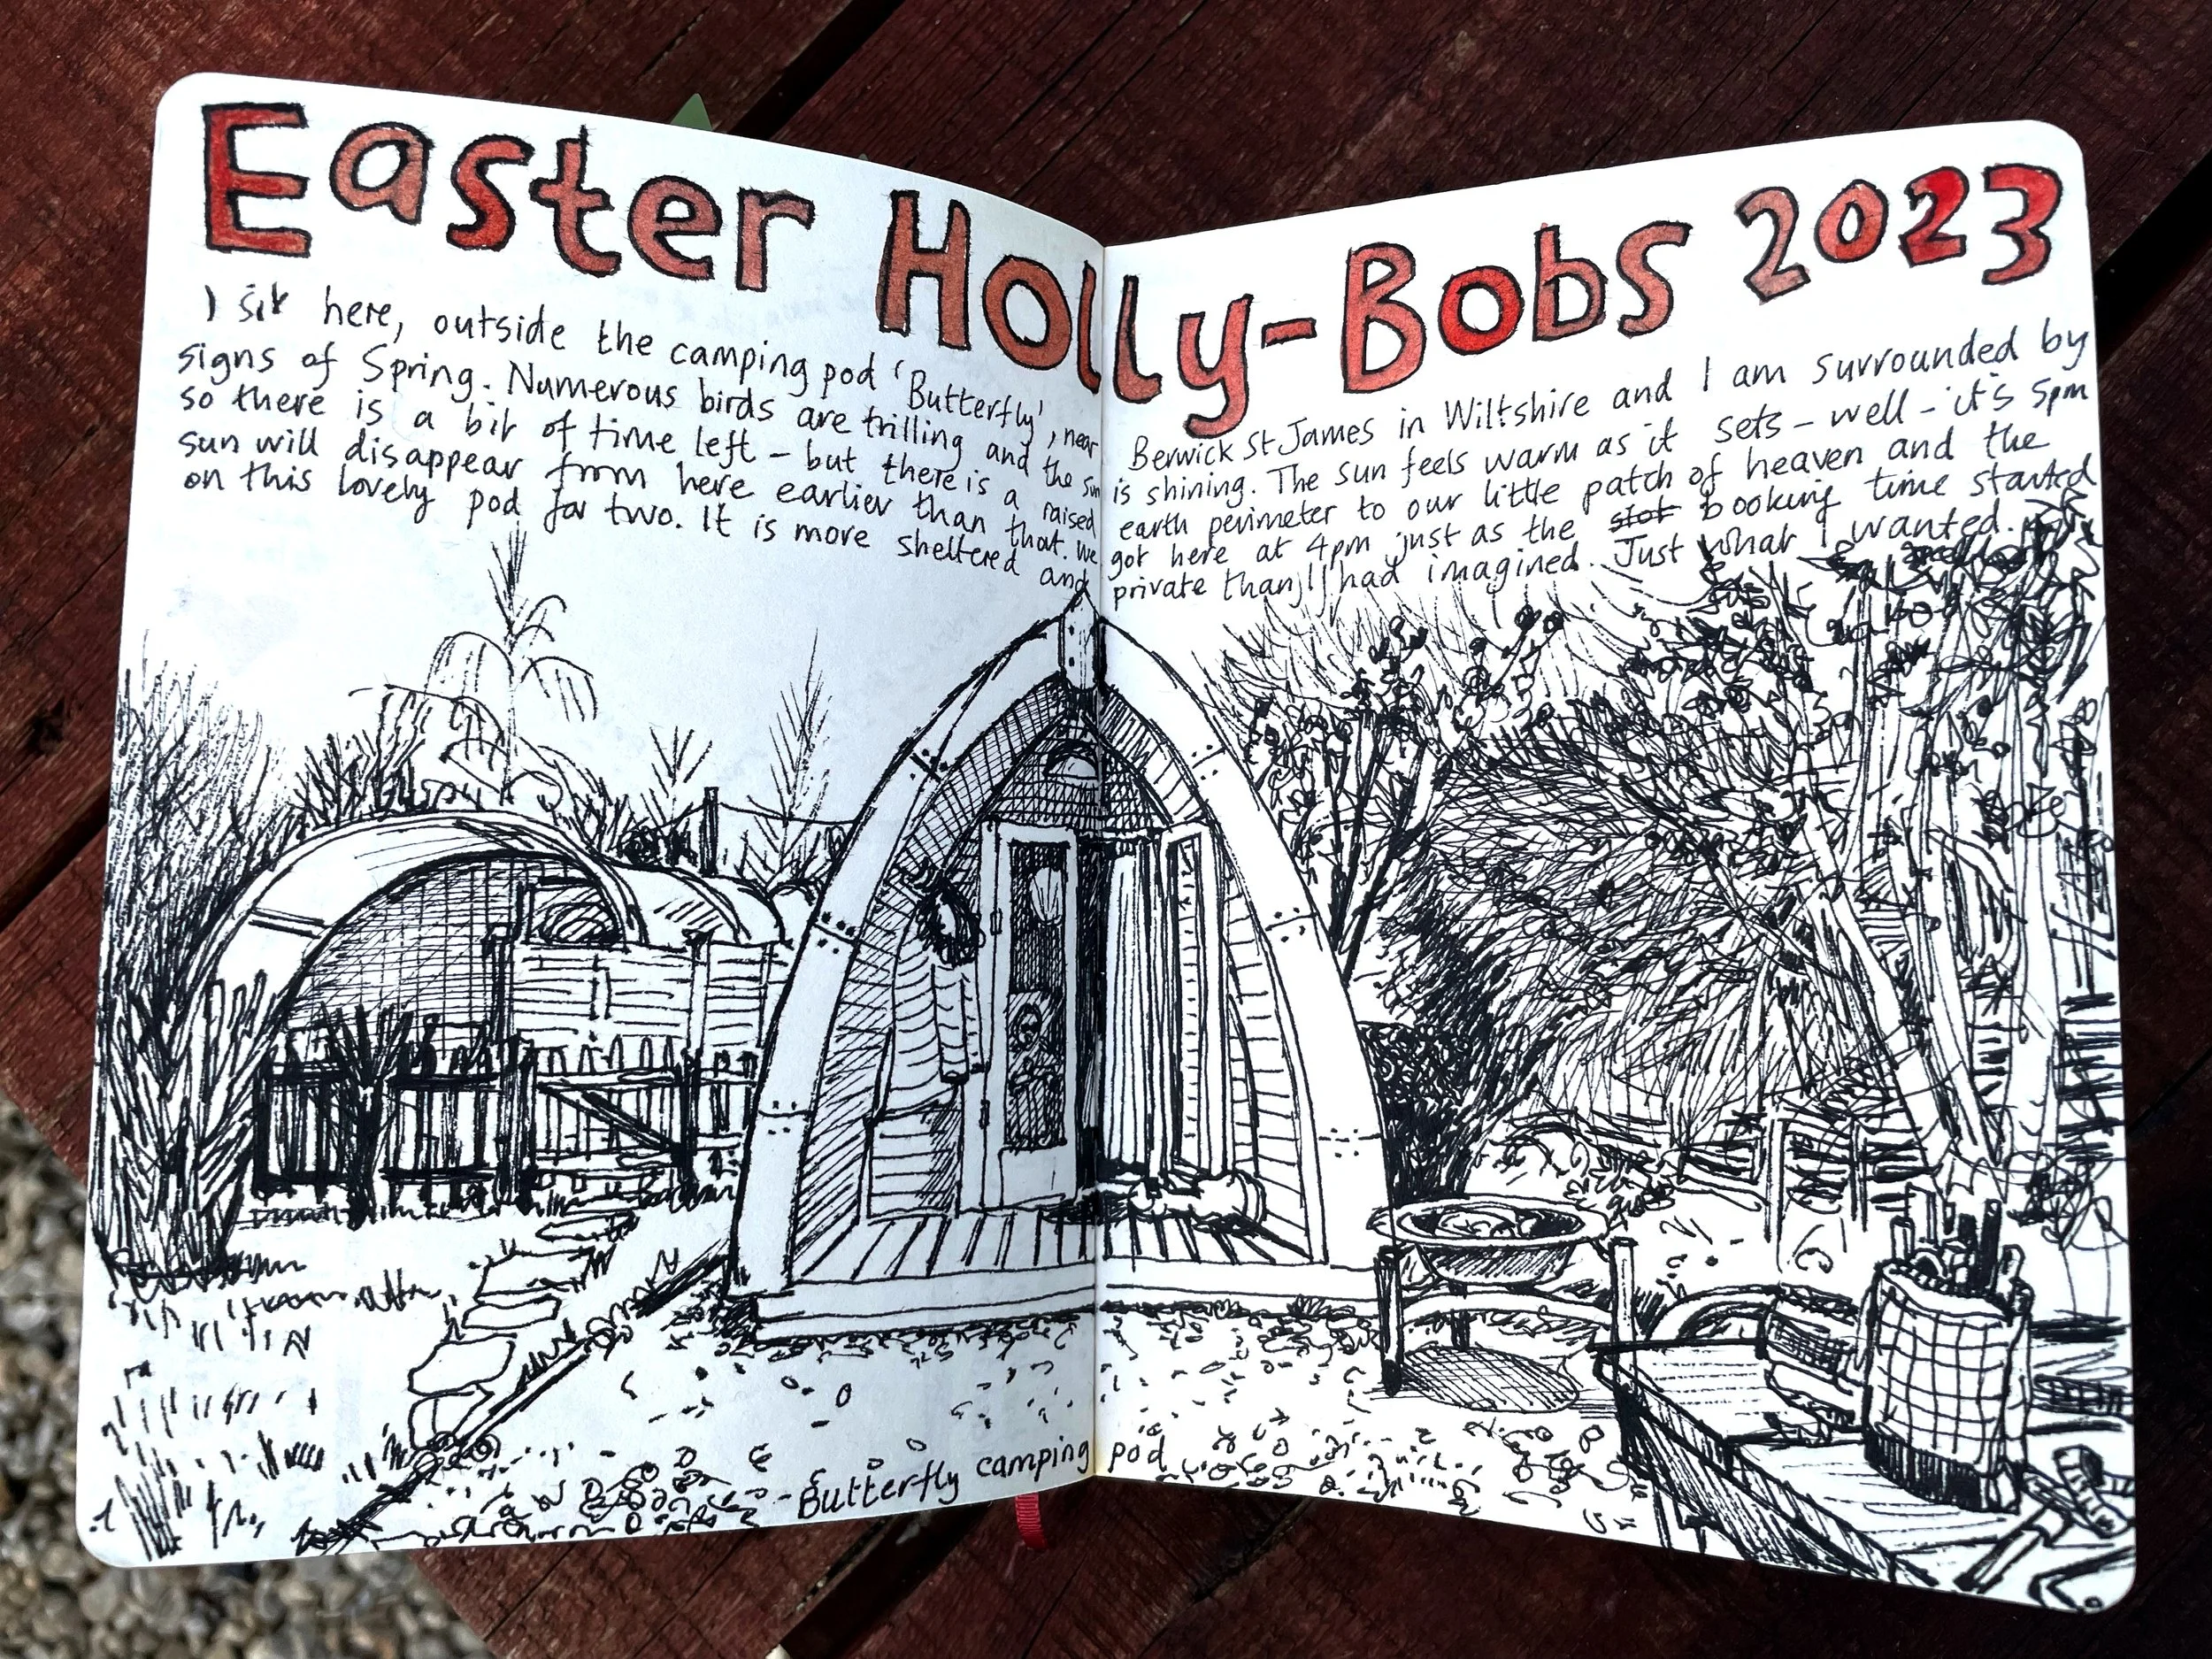 Easter Holly-Bobs 2023
I sit here, outside the camping pod 'Butterfly', near Berwick St James in Wiltshire and I am surrounded by
signs of Spring. Numerous birds are trilling and the sun is shining. The sun feels warm as it sets – well – it's 5pm
so there is a bit of time left – but there is a raised earth perimeter to our little patch of heaven and the
sun will disappear from here earlier than that. We got here at 4pm just as the slot booking time started
on this lovely pod for two. It is more sheltered and private than I had imagined. Just what I wanted.
- Butterfly camping pod